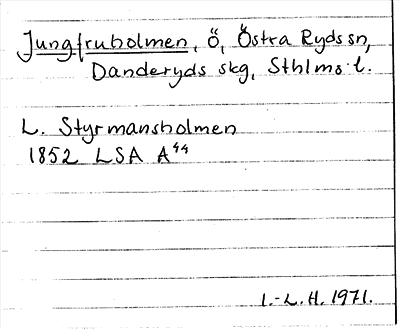 Jungfruholmen, ö, Östra Ryds sn,
Danderyds skg, Sthlms l.
L. Styrmansholmen
1852 LSA A⁴⁴
I.-L.H. 1971.